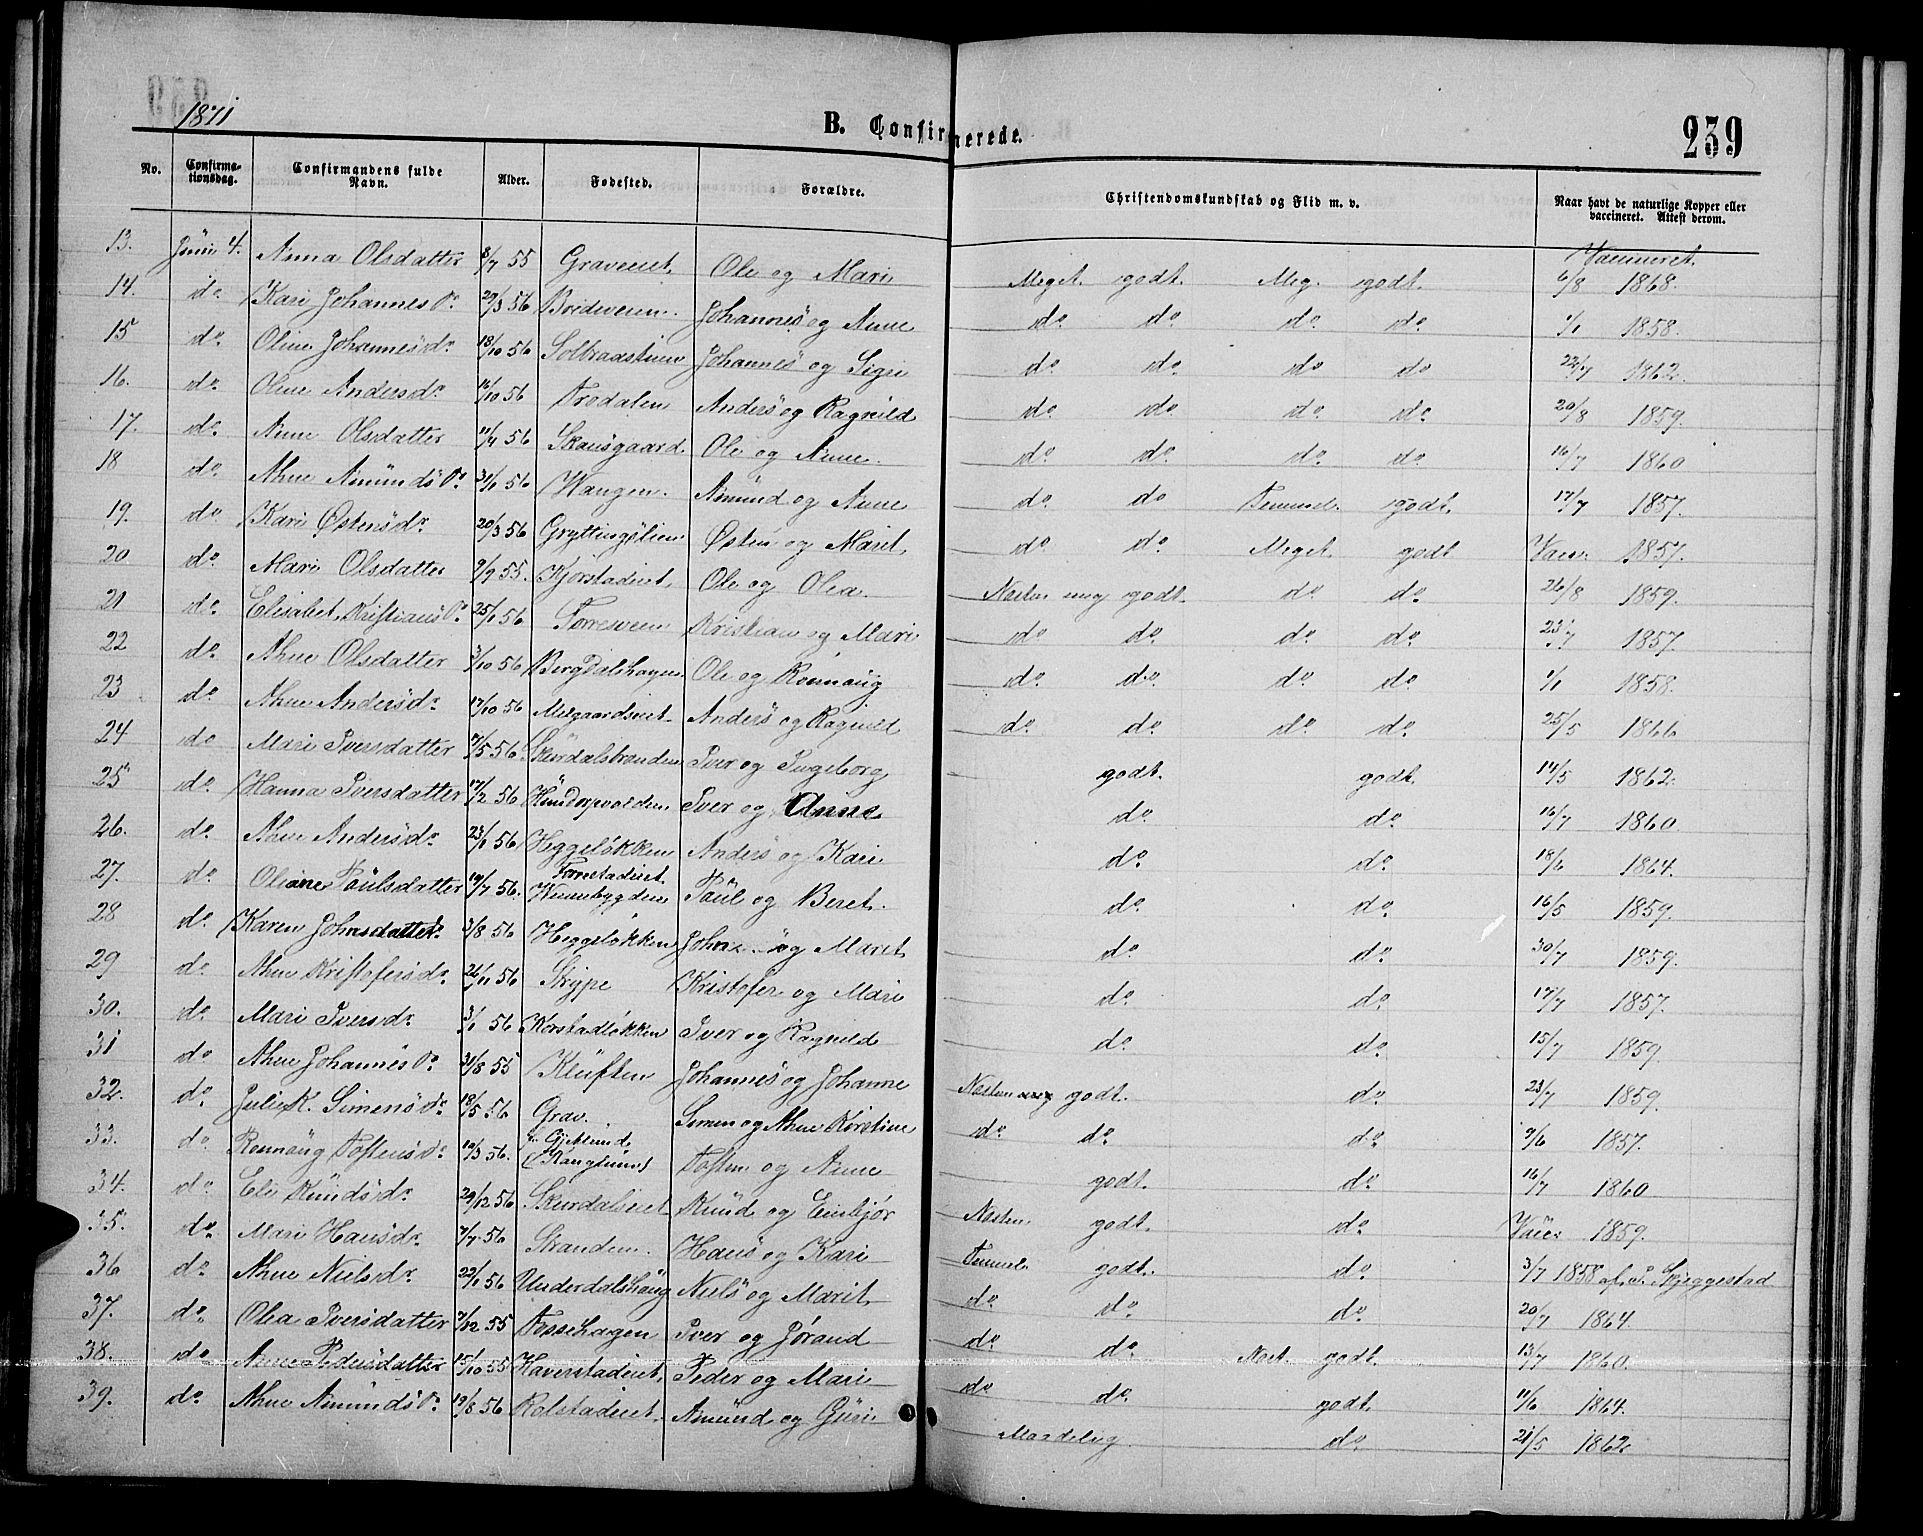 1871
B. Confirmerede.
239
No. Confirmationsdag. Confirmandens fulde Navn. Alder. Fødested. Forældre. Christendomskundskab og Flid m. v. Naar havt de naturlige Kopper eller vaccineret. Attest derom.
13. Juni 4. Anna Olsdatter 8/7 55 Graveriet Ole og Mari Meget godt Meg. godt. Vaccineret 6/8 1868.
14. do Kari Johannesd. 29/3 56 Johannes og Anne do do do do 1/1 1858.
15 do Oline Johannesdr 18/10 56 Solbraastuen Johannes og Sigri do do do do 22/7 1862.
16. do Oline Andersdr 16/10 56 Trodalen Anders og Ragnild do do do do 20/8 1859.
17. do Anne Olsdatter 11/4 56 Skansgaard Ole og Anne. do do do do 16/7 1860
18 do Ahne Amundsd. 31/1 56 Wangen. Amund og Anne do do Temmel. godt. 17/7 1857.
19. do Kari Østensdr 20/3 56 Gryttingslien Østen og Marit do do Meget godt Vacc. 1857.
20 do Mari Olsdatter 9/9 55. Kjorstadeiet Ole og Olea. Næsten meg godt. do do 26/8 1859.
21 do Elisabet Kristiansd. 25/1 56 Torresveen Kristian og Mari do do do do 23/7 1857.
22 do Ahne Olsdatter 3/10 56 Bergdalshagen Ole og Rønnaug do do do do 1/1 1858.
23 do Ahne Andersdr 17/10 56 Melgaardseiet Anders og Ragnild do do do do 25/5 1866
24 do Mari Iversdatter 7/5 56. Skurdalsbranden Iver og Ingeborg godt. godt. 14/5 1862.
25 do Hanna Iversdatter 17/2 56 Hundorpvolden Iver og Anne do do 16/7 1860.
26. do Ahne Andersdr 23/1 56 Heggeløkken Anders og Kari do do 18/6 1864.
27. do Oliane Paulsdatter 19/7 56. Kvinebygden Paul og Beret. do do 16/5 1859.
28 do Karen Johnsdatter 3/8 56 Heggeløkken John og Maret do do 30/7 1859.
29 do Ahne Kristofersdr 26/11 56 Skype Kristofer og Mari do do 17/7 1857.
30. do Mari Iversdr 3/1 56 Korstadløkken Iver og Ragnild do do 15/7 1859.
31 do Ahne Johannesd. 31/8 55 Kluften Johannes og Johanne Næsten godt. do 23/7 1859.
32. do Julie K. Simensdr 18/5 56 Grav. Simen og Ahne Kirstine do do do 9/6 1857.
33. do Rønnaug Tostensdr 19/3 56. Tosten og Anne godt. do 16/7 1860
34. do Eli Knudsdr 29/12 56 Skurdalseiet Knud og Embjør Næsten godt. do Vacc. 1859.
35. do Mari Hansdr 7/7 56 Stranden. Hans og Kari Temmel. godt. do 3/7 1858 af P. Skjeggestad
36 do Ahne Nielsdr 22/1 56 Underdalshaug Niels og Marit do do do 20/7 1864
37. do Olea Iversdatter 7/12 55 Fossehagen Iver og Jørand do do Næst. godt. 13/7 1860.
38. do Anne Pedersdatter 15/10 55 Haverstadeiet Peder og Mari do do godt. 11/6 1864.
39. do Ahne Amundsd. 19/8 56 Rolstadeiet Amund og Guri Maadelig do 21/5 1862